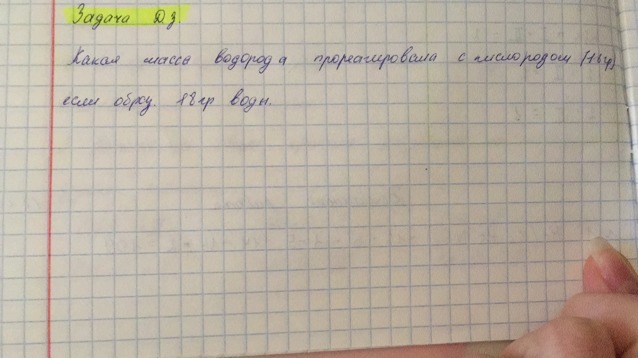 Задача Д.з.
Какая масса водорода прореагировала с кислородом
если образ. 18гр воды.